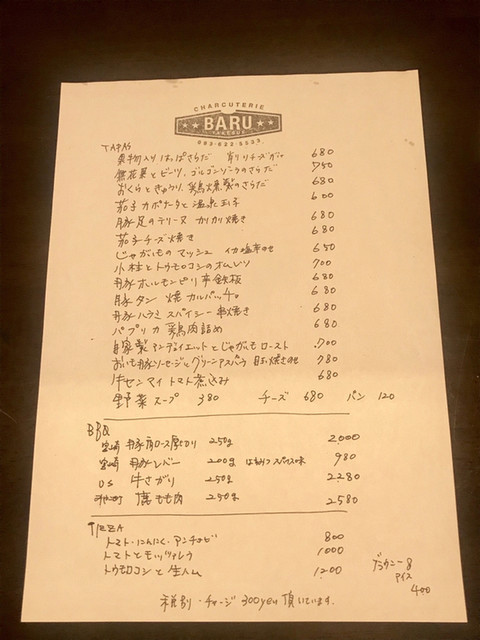 CHARCUTERIE
BARU
TAPAS
果物入り はっぱさらだ 削りチーズがけ 680
無花果とビーツ、ゴルゴンゾーラのさらだ 750
おくらときゅうり、鶏燻製のさらだ 680
茄子カポナータと温泉玉子 600
豚足のテリーヌ カリカリ焼き 680
茄子チーズ焼き 680
じゃがいものマッシュ イカ塩辛のせ 650
小柱とトウモロコシのオムレツ 700
豚ホルモンピリ辛鉄板 680
豚タン 燻 カルパッチョ 680
豚ハラミ スパイシー串焼き 680
パプリカ 鶏肉詰め 680
自家製アンデュイエットとじゃがもロースト 700
おいも豚ソーセージとグリーンアスパラ 目玉焼きのせ 780
牛センマイ トマト煮込み 680
野菜スープ 380 チーズ 680 パン 120
BBQ
宮崎 豚肩ロース厚切り 250g 2,000
宮崎 豚レバー 200g はちみつスパイス味 980
US 牛さがり 250g 2280
鹿もも肉 250g 2580
PIZZA
トマト・にんにく・アンチョビ 800
トマトとモッツァレラ 1000
トウモロコシと生ハム 1200
ブラウニー &
アイス
400
税別・チャージ 300yen 頂いています。